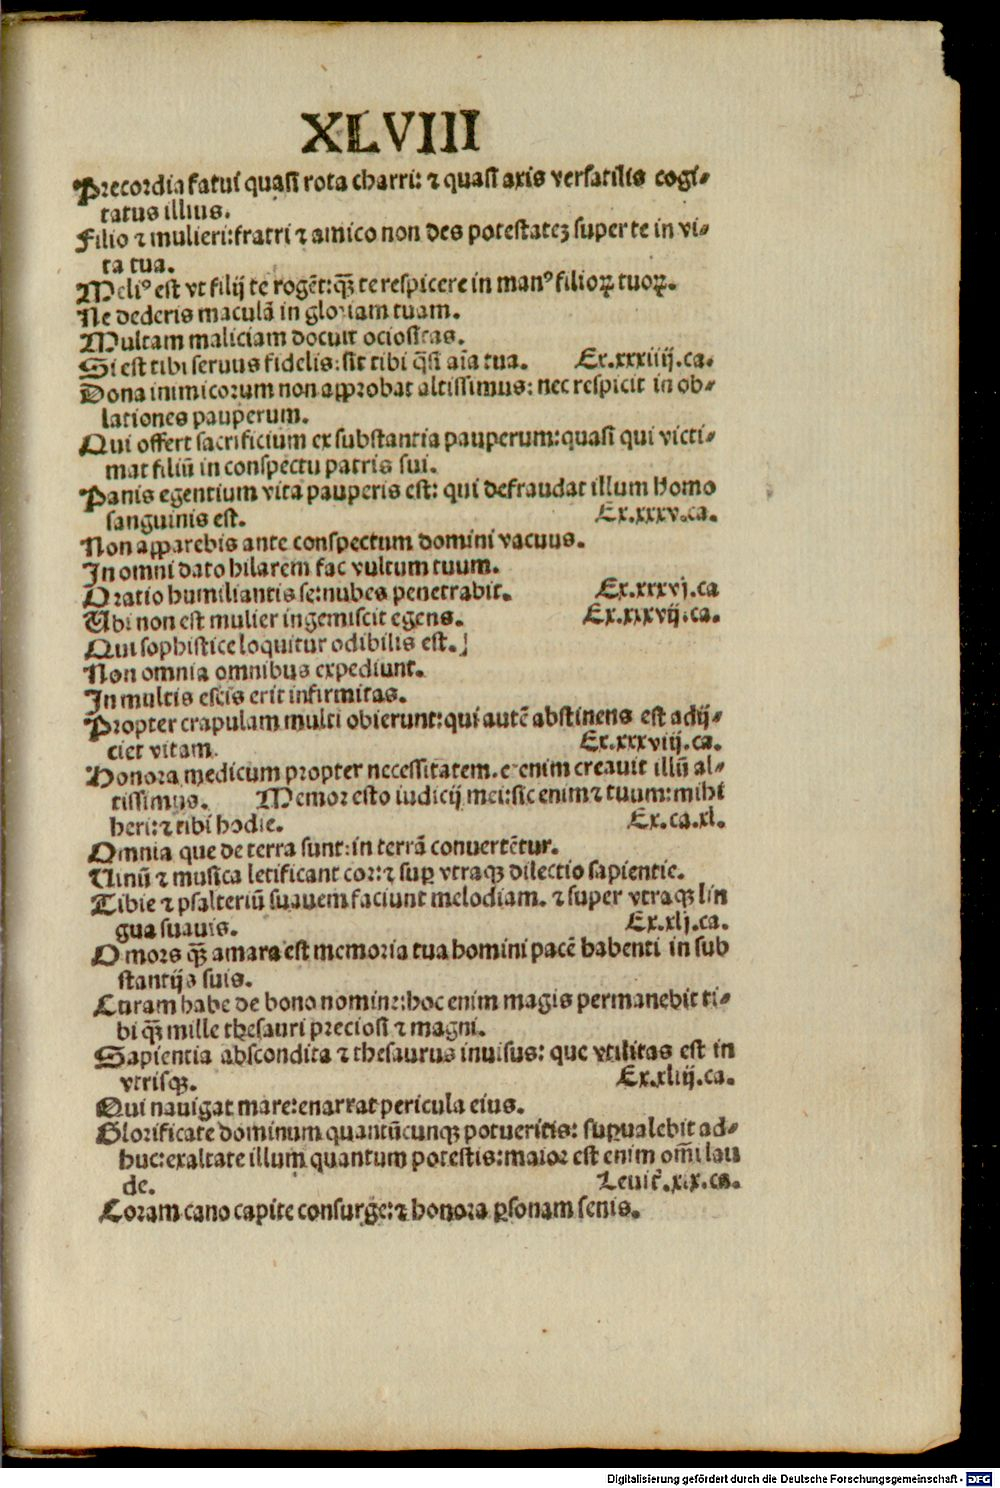 XLVIII
Precordia fatui quasi rota charri: ⁊ quasi axis versatilis cogi⸗
tatus illius.
Filio ⁊ mulieri: fratri ⁊ amico non des potestateꝫ super te in vi⸗
ta tua.
Meliꝰ est vt filij te rogēt: qꝫ̄ te respicere in manꝰ filioꝝ tuoꝝ.
Ne dederis maculā in gloriam tuam.
Multam maliciam docuit ociositas.
Si est tibi seruus fidelis: sit tibi q̄si aīa tua. Ex.xxxiiij.ca.
Dona inimicorum non approbat altissimus: nec respicit in ob⸗
lationes pauperum.
Qui offert sacrificium ex substantia pauperum: quasi qui victi⸗
mat filiū in conspectu patris sui.
Panis egentium vita pauperis est: qui defraudat illum homo
sanguinis est. Ex.xxxv.ca.
Non apparebis ante conspectum domini vacuus.
In omni dato hilarem fac vultum tuum.
Oratio humiliantis se: nubes penetrabit. Ex.xxxvj.ca
Ubi non est mulier ingemiscit egens. Ex.xxxvij.ca.
Qui sophistice loquitur odibilis est.
Non omnia omnibus expediunt.
In multis escis erit infirmitas.
Propter crapulam multi obierunt: qui autē abstinens est adij⸗
ciet vitam. Ex.xxxviij.ca.
Honora medicum propter necessitatem. etenim creauit illū al⸗
tissimus. Memor esto iudicij mei: sic enim ⁊ tuum: mihi
heri: ⁊ tibi hodie. Ex.ca.xl.
Omnia que de terra sunt: in terrā conuertētur.
Uinū ⁊ musica letificant cor: ⁊ suꝑ vtraqꝫ dilectio sapientie.
Tibie ⁊ psalteriū suauem faciunt melodiam. ⁊ super vtraqꝫ lin
gua suauis. Ex.xlj.ca.
O mors qꝫ̄ amara est memoria tua homini pacē habenti in sub
stantijs suis.
Curam habe de bono nomine: hoc enim magis permanebit ti⸗
bi qꝫ̄ mille thesauri preciosi ⁊ magni.
Sapientia abscondita ⁊ thesaurus inuisus: que vtilitas est in
vtrisqꝫ. Ex.xliij.ca.
Qui nauigat mare: enarrat pericula eius.
Glorificate dominum quantūcunqꝫ potueritis: suꝑualebit ad⸗
huc: exaltate illum quantum potestis: maior est enim om̄i lau
de. Leuit̄.xix.ca.
Coram cano capite consurge: ⁊ honora ꝑsonam senis.
Digitalisierung gefördert durch die Deutsche Forschungsgemeinschaft - DFG